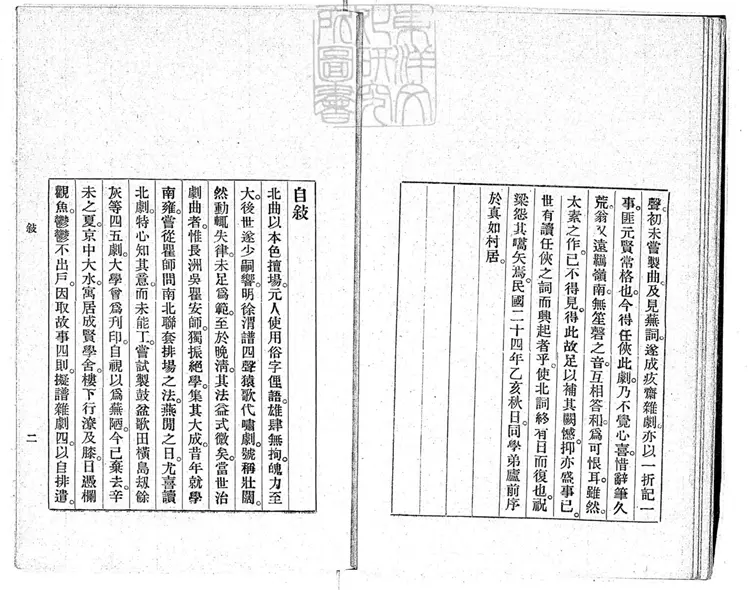 聲初未嘗製曲。及見蕪詞。遂成疚齋雜劇。亦以一折記一
事。匪元賢常格也。今得任俠此劇。乃不覺心喜。惜辭筆久
荒。翁又遠羈嶺南。無笙磬之音。互相答和。爲可恨耳。雖然。
太素之作。已不得見。得此故足以補其闕憾。抑亦盛事已。
世有讀任俠之詞而興起者乎。使北詞終有日而復也。祝
梁怨其嚆矢焉。民國二十四年乙亥秋日同學弟盧前序
於真如村居。
自敍
北曲以本色擅場。元人使用俗字俚語。雄肆無拘。魄力至
大。後世遂少嗣響。明徐渭譜四聲猿歌代嘯劇。號稱壯闊。
然動輒失律。未足爲範。至於晚淸。其法益式微矣。當世治
劇曲者。惟長洲吳瞿安師。獨振絕學。集其大成。昔年就學
南雍。嘗從瞿師問南北聯套排場之法。燕閒之日。尤喜讀
北劇。特心知其意。而未能工。嘗試製鼓盆歌田橫島刼餘
灰等四五劇。大學曾爲刋印。自視以爲蕪陋。今已棄去。辛
未之夏。京中大水。寓居成賢學舍。樓下行潦及膝。日憑欄
觀魚。鬱鬱不出戶。因取故事四則。擬譜雜劇四。以自排遣。
敍
二
東洋文
化研究
所圖書